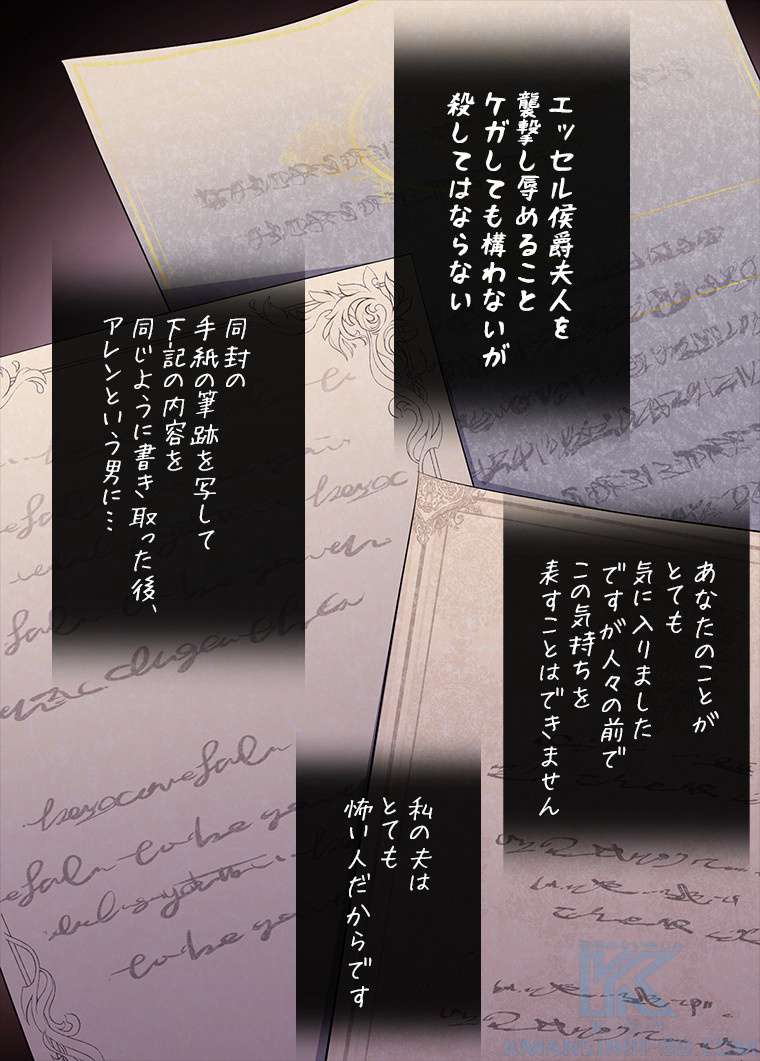 エッセル侯爵夫人を
襲撃し辱めること
ケガしても構わないが
殺してはならない
同封の
手紙の筆跡を写して
下記の内容を
同じように書き取った後、
アレンという男に…
あなたのことが
とても
気に入りました
ですが人々の前で
この気持ちを
表すことはできません
私の夫は
とても
怖い人だからです